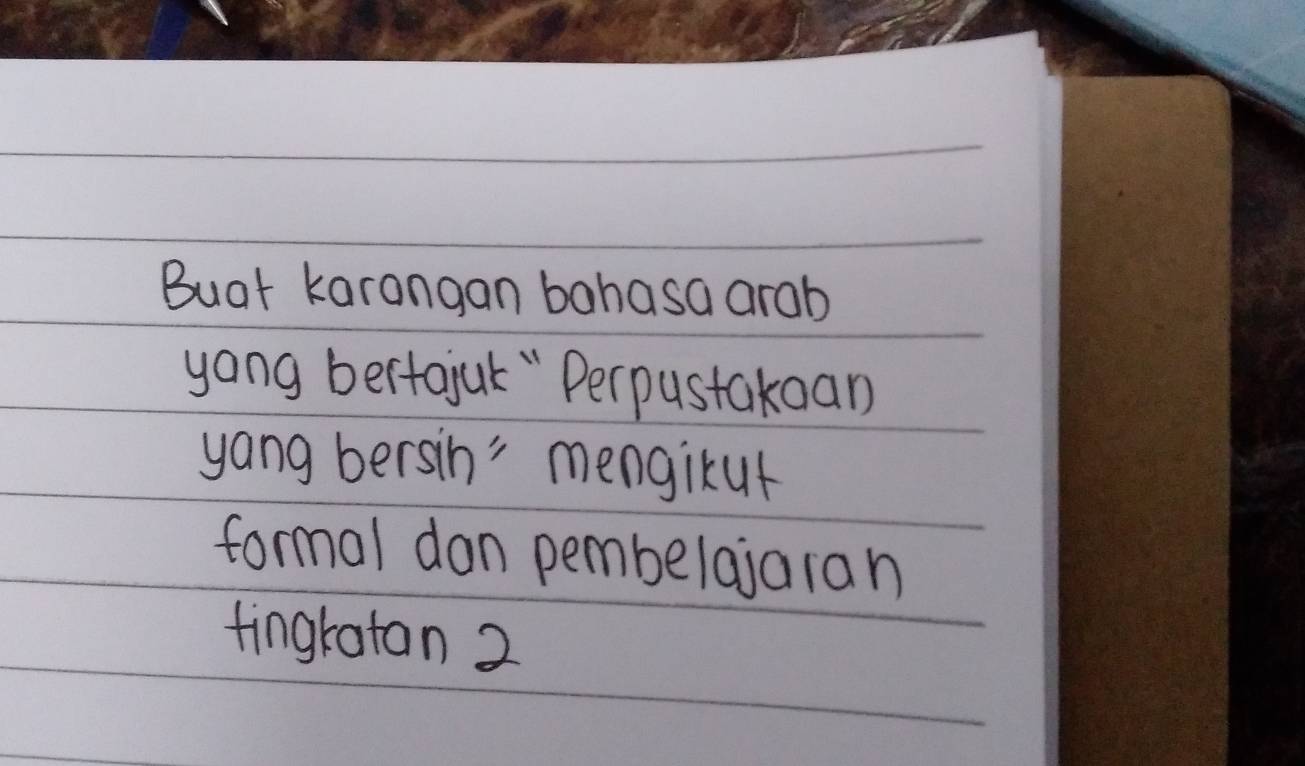 Buat karangan bahasa arab
yang bertajuk "Perpustakaan
yang bersih" mengikut
formal dan pembelajaran
tingkatan 2